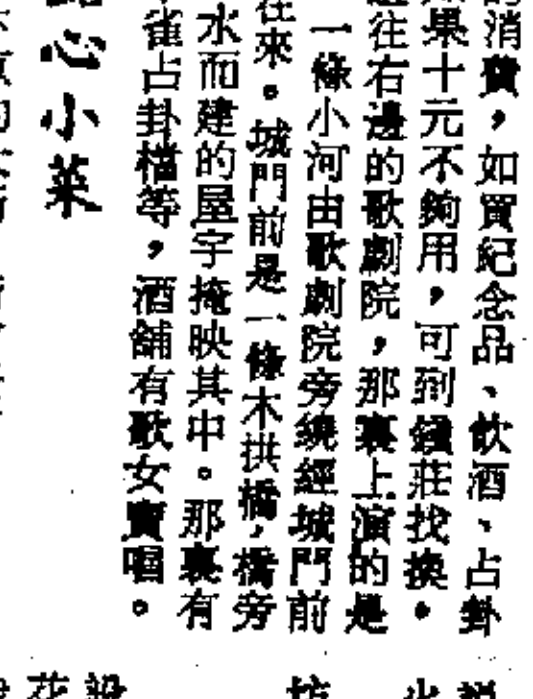 的消費，如買紀念品、飲酒、占卦
如果十元不夠用，可到錢莊找換。
往右邊的歌劇院，那裏上演的是
一條小河由歌劇院旁繞經城門前
往來。城門前是一條木拱橋，橋旁
水而建的屋宇掩映其中。那裏有
雀占卦檔等，酒舖有歌女賣唱。
心小菜